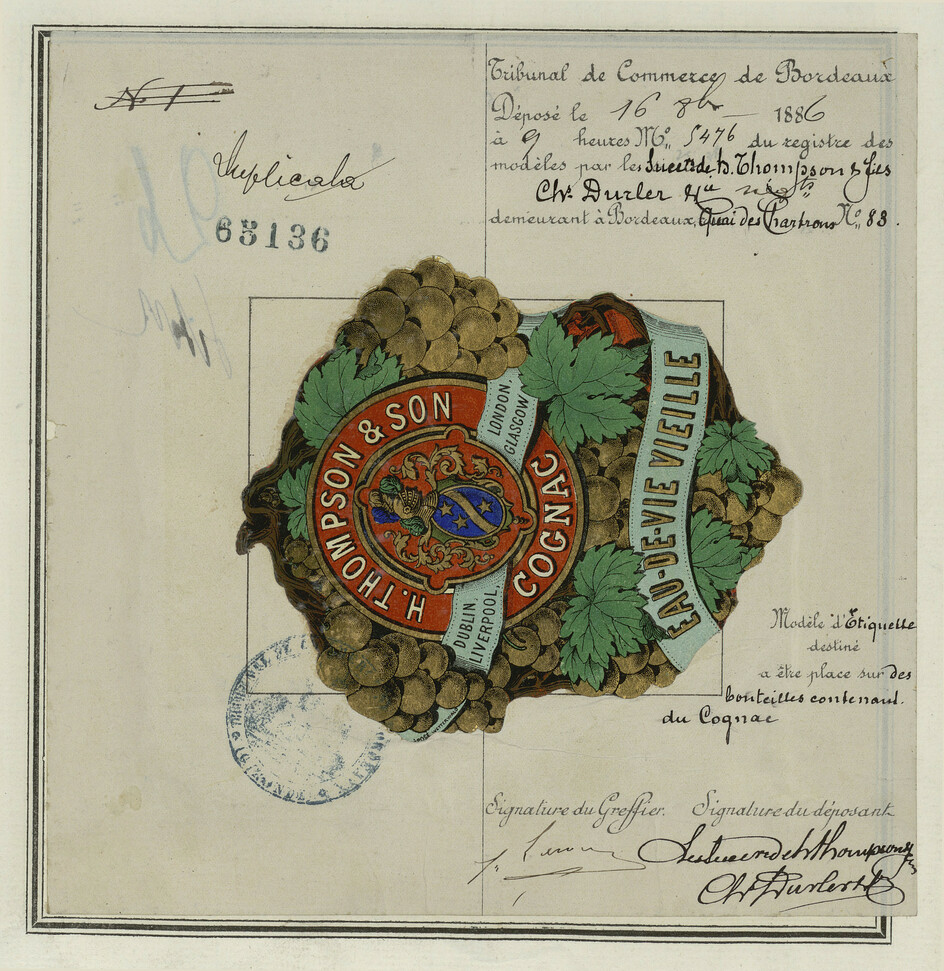 N. 1
Duplicata
65136
Tribunal de Commerce de Bordeaux
Déposé le 16 8bre 1886
à 9 heures No. 5476 du registre des
modèles par les Succrs de H. Thompson & fils
Chs. Durler & Cie négts
demeurant à Bordeaux, Quai des Chartrons No. 83.
H. THOMPSON & SON
COGNAC
LONDON,
GLASGOW
DUBLIN
LIVERPOOL,
EAU-DE-VIE VIEILLE
Modèle d'Etiquette
destiné
a être place sur des
bouteilles contenant.
du Cognac
GIRONDE
Signature du Greffier. Signature du déposant
Les Succrs de H Thompson & fils
Chs Durler & Cie